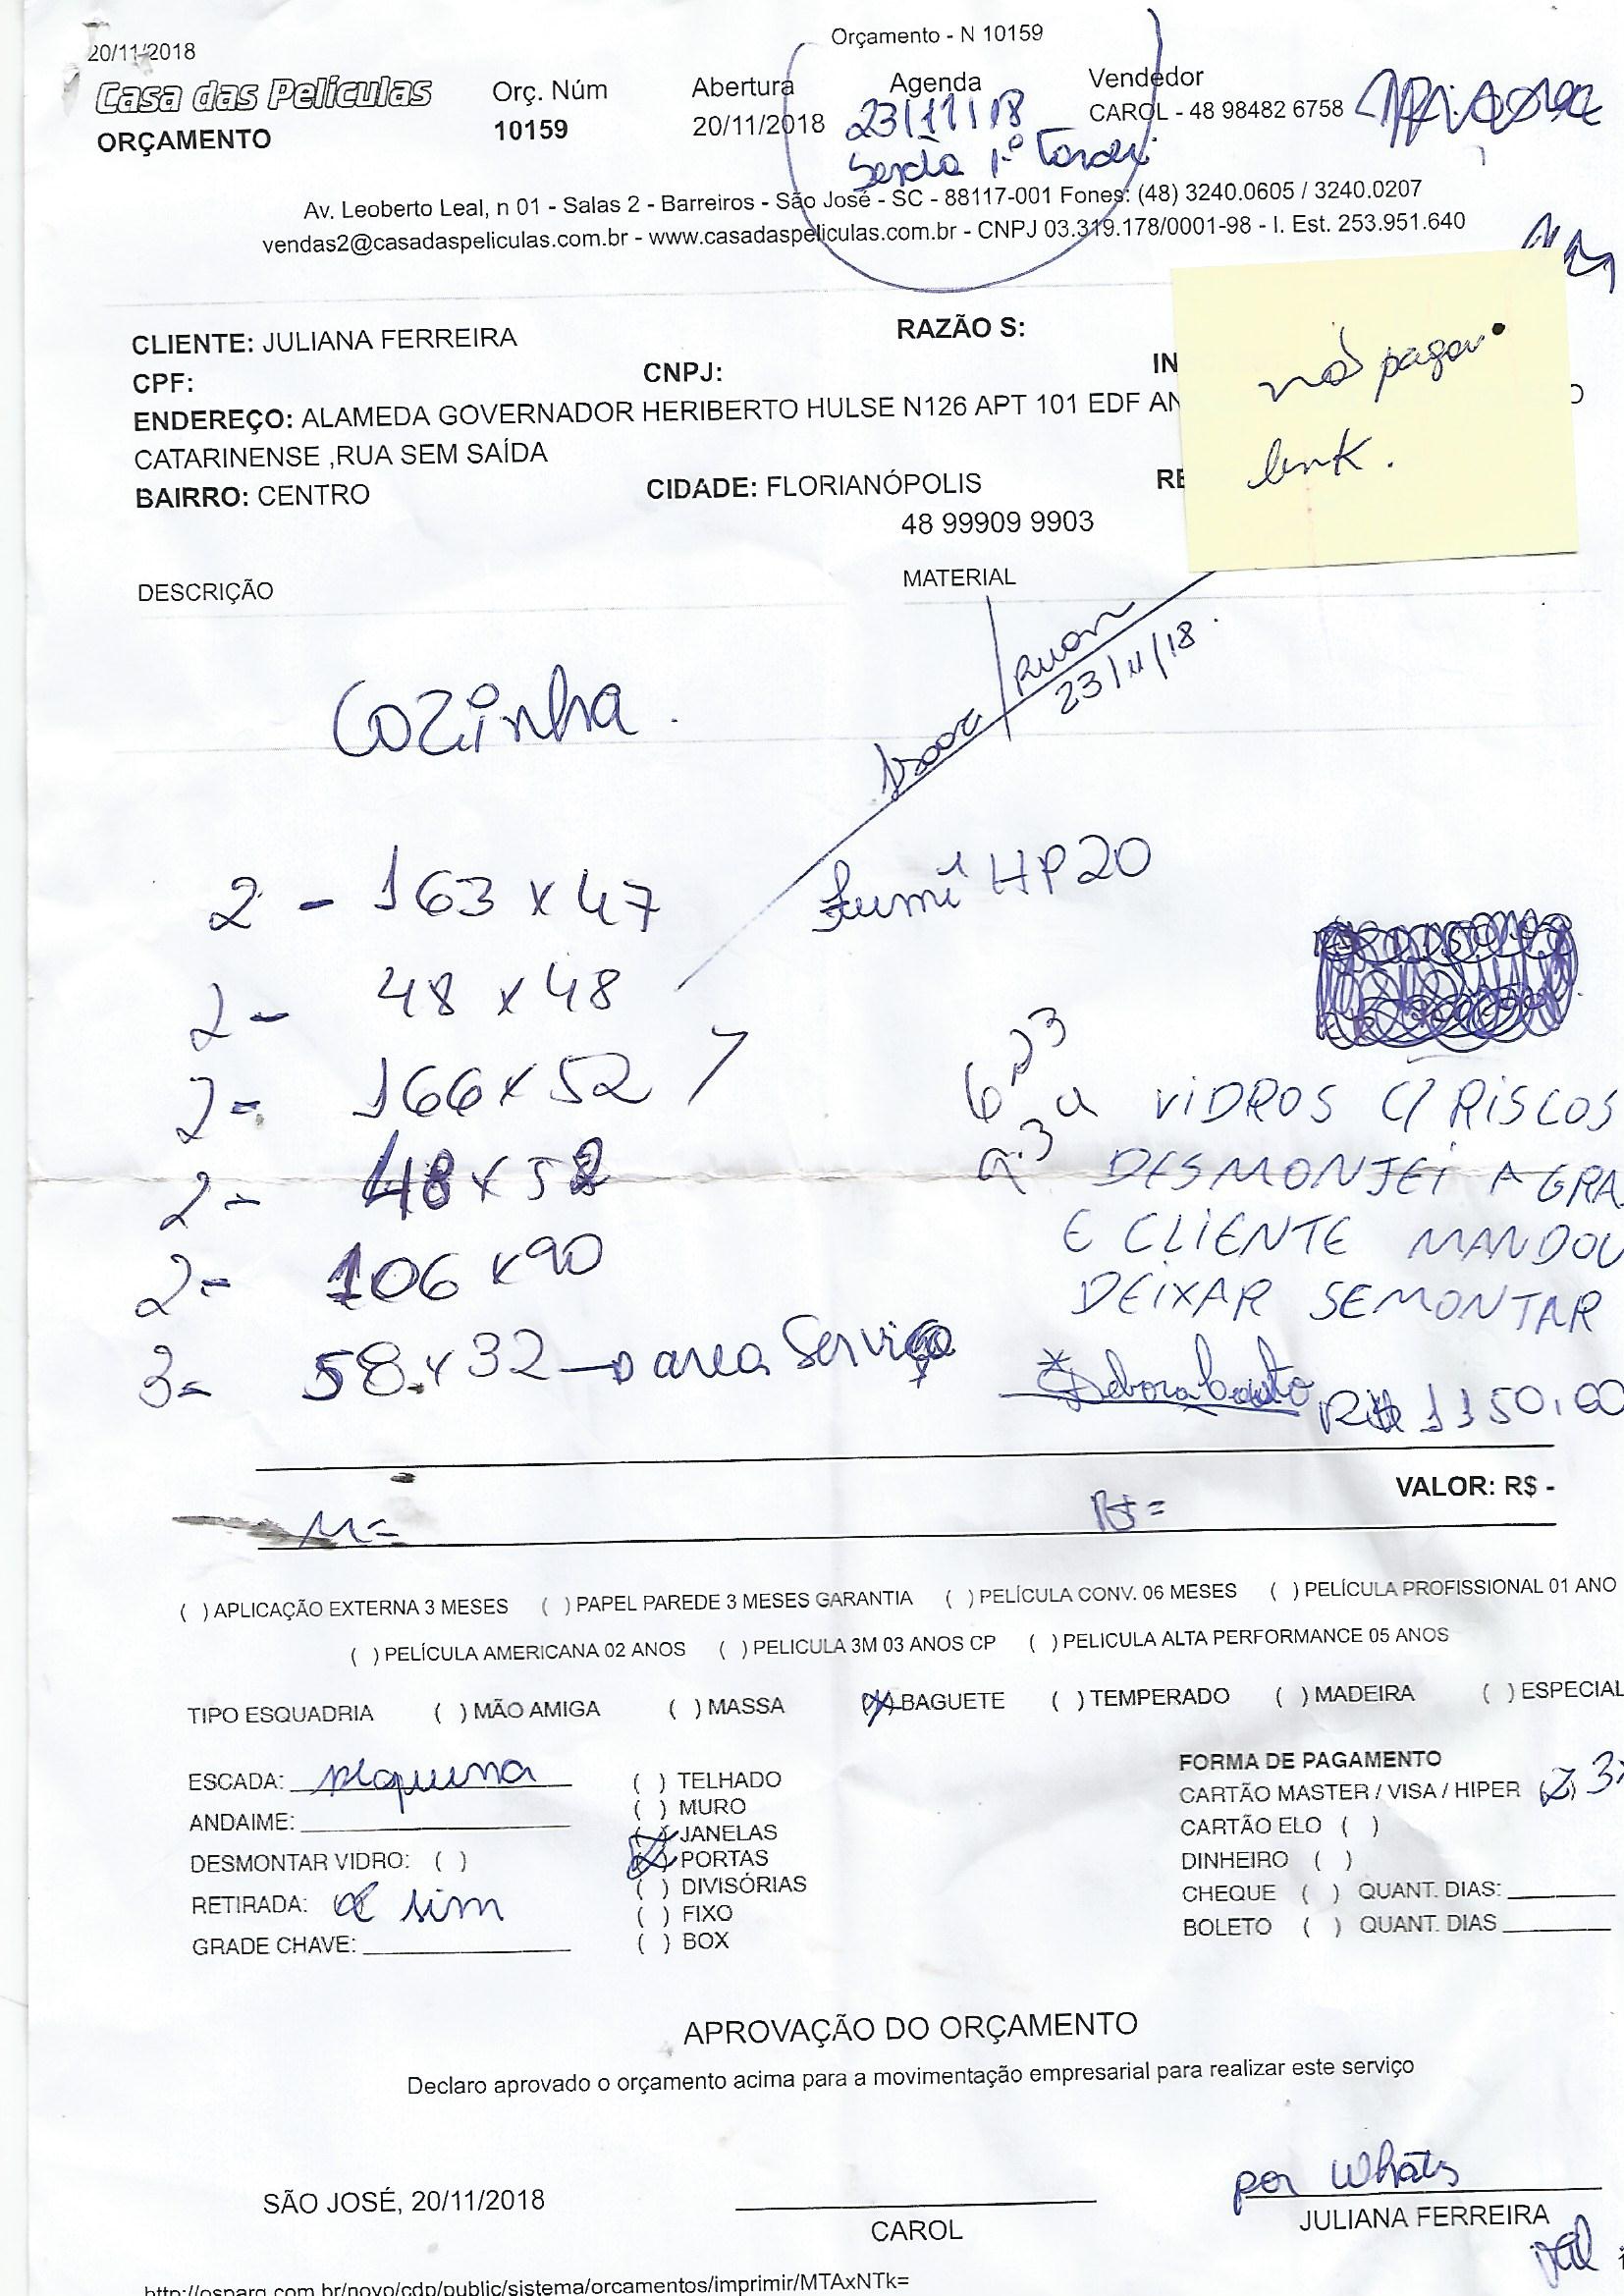 Orçamento - N 10159
20/11/2018
Casa das Películas
ORÇAMENTO
Orç. Núm
10159
Abertura
20/11/2018
Agenda
23/11/18
Sexta 1º Tarde
Vendedor
CAROL - 48 98482 6758
Av. Leoberto Leal, n 01 - Salas 2 - Barreiros - São José - SC - 88117-001 Fones: (48) 3240.0605 / 3240.0207
vendas2@casadaspeliculas.com.br - www.casadaspeliculas.com.br - CNPJ 03.319.178/0001-98 - I. Est. 253.951.640
CLIENTE: JULIANA FERREIRA
RAZÃO S:
CPF:
CNPJ:
IN
não pagou
link.
ENDEREÇO: ALAMEDA GOVERNADOR HERIBERTO HULSE N126 APT 101 EDF AN
CATARINENSE ,RUA SEM SAÍDA
BAIRRO: CENTRO
CIDADE: FLORIANÓPOLIS
RE
48 99909 9903
DESCRIÇÃO
MATERIAL
Isaac / Ruan
23/11/18.
Cozinha.
2 - 163 x 47
fumê HP20
2 - 48 x 48
2 - 166 x 52
2 - 48 x 52
2 - 106 x 90
3 - 58 x 32 → area Serviço
VIDROS C/ RISCOS
DESMONTEI A GRA
E CLIENTE MANDOU
DEIXAR SEMONTAR
R$ 1150,00
VALOR: R$ -
M=
R$=
( ) APLICAÇÃO EXTERNA 3 MESES ( ) PAPEL PAREDE 3 MESES GARANTIA ( ) PELÍCULA CONV. 06 MESES ( ) PELÍCULA PROFISSIONAL 01 ANO
( ) PELÍCULA AMERICANA 02 ANOS ( ) PELICULA 3M 03 ANOS CP ( ) PELICULA ALTA PERFORMANCE 05 ANOS
TIPO ESQUADRIA ( ) MÃO AMIGA ( ) MASSA (X) BAGUETE ( ) TEMPERADO ( ) MADEIRA ( ) ESPECIAL
ESCADA: pequena
ANDAIME:
DESMONTAR VIDRO: ( )
RETIRADA: (x) sim
GRADE CHAVE:
( ) TELHADO
( ) MURO
(X) JANELAS
(X) PORTAS
( ) DIVISÓRIAS
( ) FIXO
( ) BOX
FORMA DE PAGAMENTO
CARTÃO MASTER / VISA / HIPER (x) 3x
CARTÃO ELO ( )
DINHEIRO ( )
CHEQUE ( ) QUANT. DIAS:
BOLETO ( ) QUANT. DIAS
APROVAÇÃO DO ORÇAMENTO
Declaro aprovado o orçamento acima para a movimentação empresarial para realizar este serviço
SÃO JOSÉ, 20/11/2018
CAROL
por Whats
JULIANA FERREIRA
http://osparq.com.br/novo/cdp/public/sistema/orcamentos/imprimir/MTAxNTk=